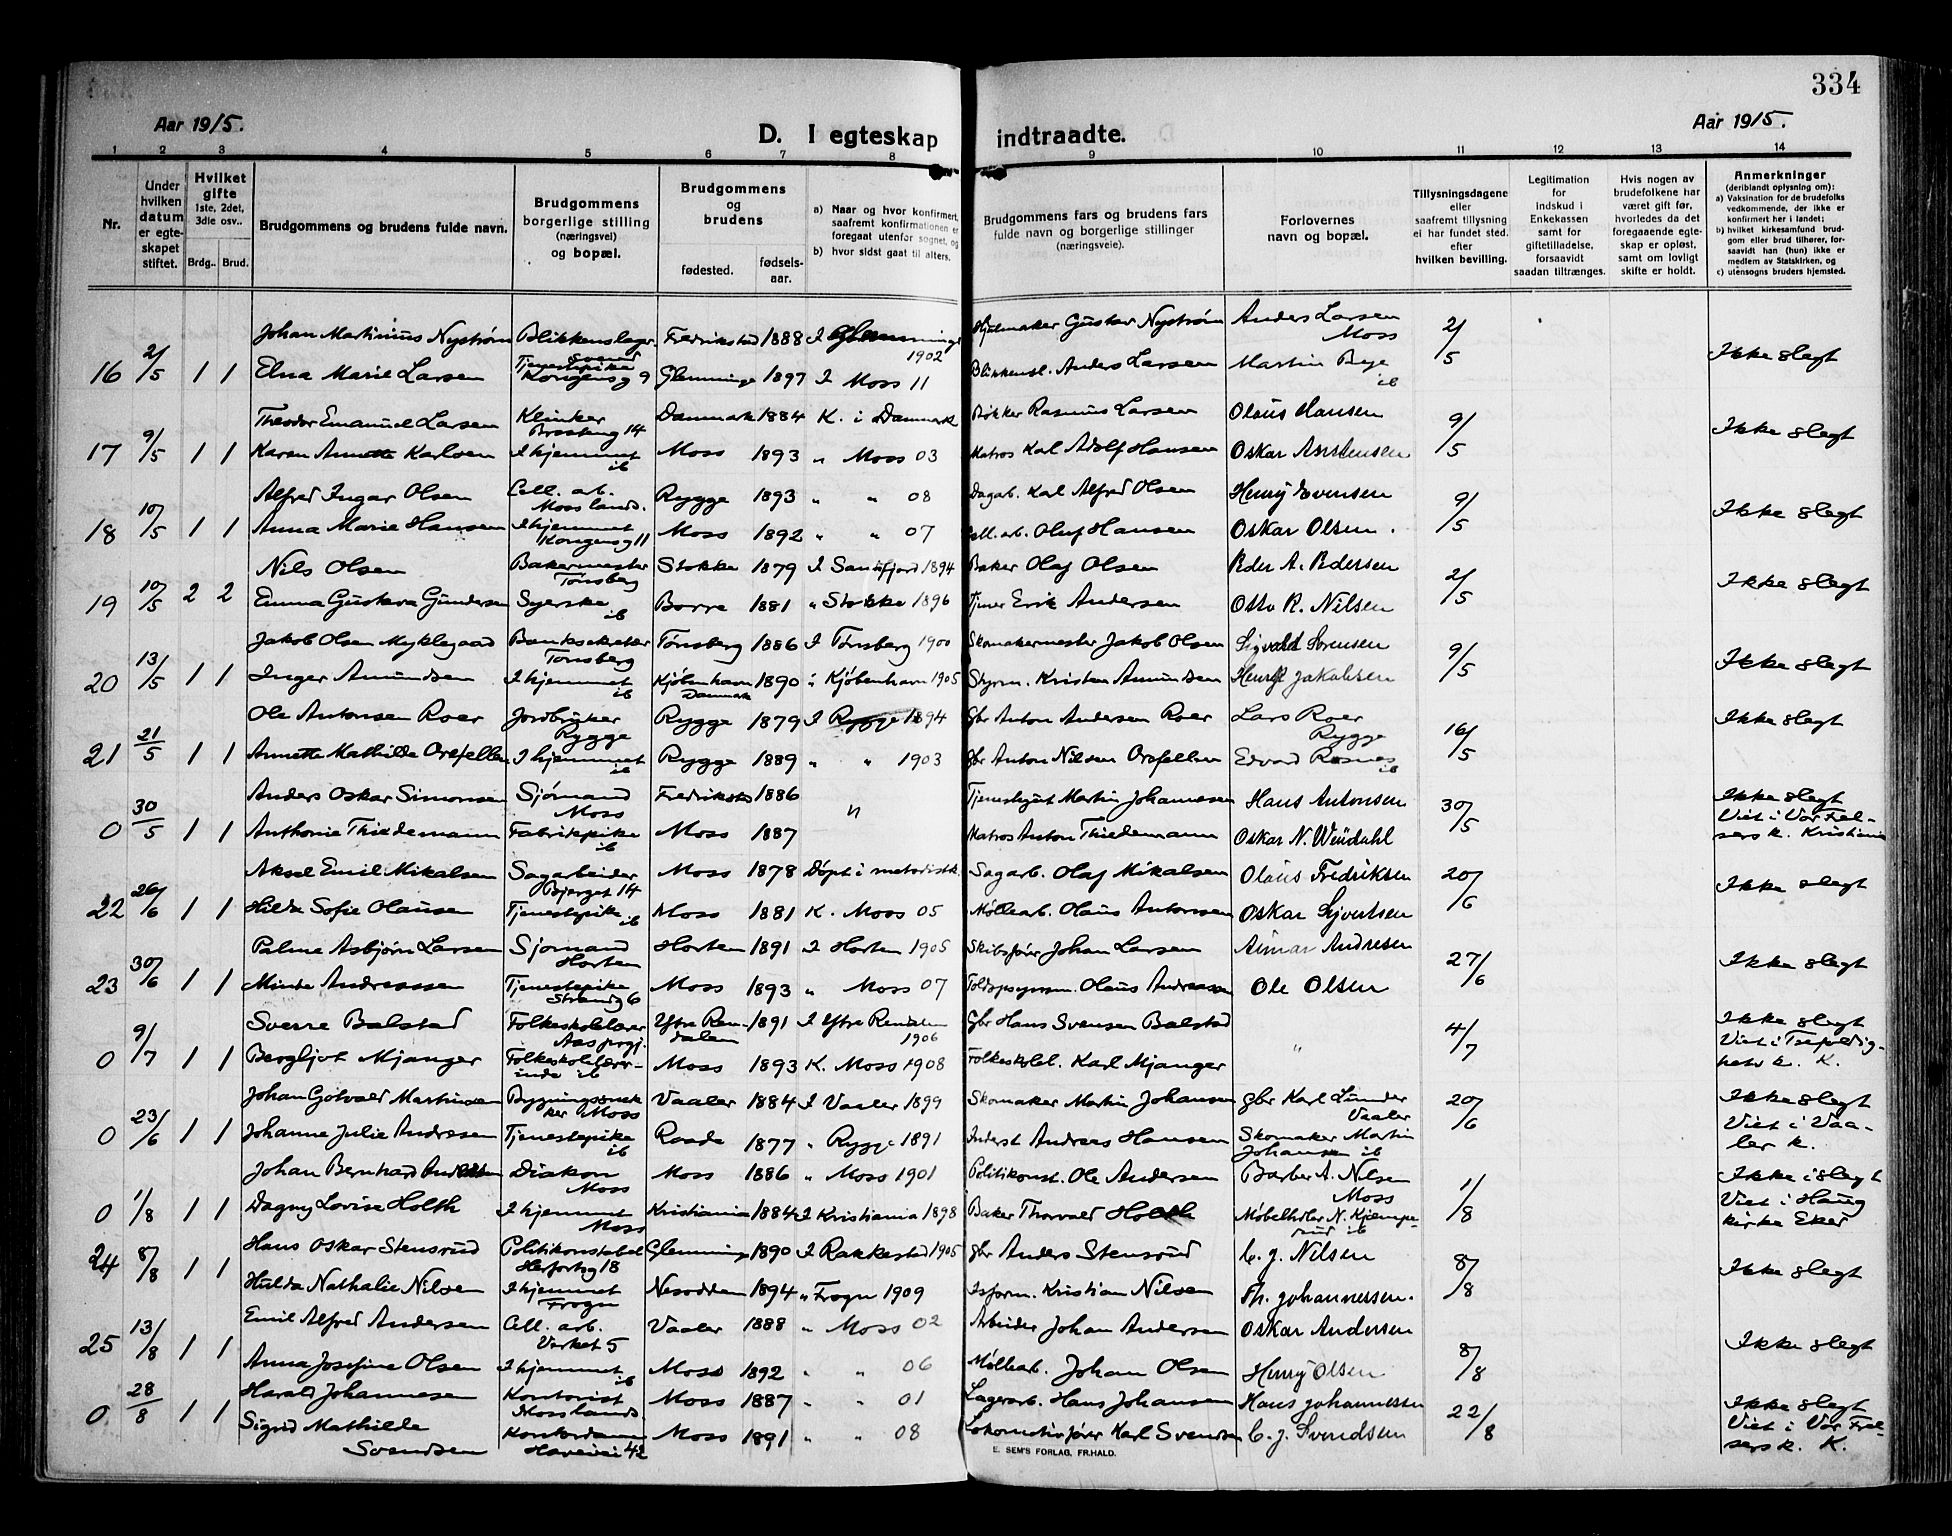 334
Aar 1915.
D. I egteskap indtraadte.
Aar 1915.
1 2 3 4 5 6 7 8 9 10 11 12 13 14
Nr.
Under hvilken datum er egte-skapet stiftet.
Hvilket gifte 1ste, 2det, 3die osv..
Brdg.. Brud.
Brudgommens og brudens fulde navn.
Brudgommens borgerlige stilling (næringsvei) og bopæl.
Brudgommens og brudens
fødested. fødsels-aar.
a) Naar og hvor konfirmert, saafremt konfirmationen er foregaat utenfor sognet, og
b) hvor sidst gaat til alters.
Brudgommens fars og brudens fars fulde navn og borgerlige stillinger (næringsveie).
Forlovernes navn og bopæl.
Tillysningsdagene eller saafremt tillysning ei har fundet sted. efter hvilken bevilling.
Legitimation for indskud i Enkekassen samt for giftetilladelse, forsaavidt saadan tiltrænges.
Hvis nogen av brudefolkene har været gift før, hvorledes da det foregaaende egte-skap er opløst, samt om lovligt skifte er holdt.
Anmerkninger (deriblandt oplysning om): a) Vaksination for de brudefolks vedkommende, der ikke er konfirmert her i landet; b) hvilket kirkesamfund brud-gom eller brud tilhører, for-saavidt han (hun) ikke er medlem av Statskirken, og c) utensogns bruders hjemsted.
Johan Martinius Nystrøm Blikkenslager svend Fredrikstad 1888 I Glemminge 1902 Hjulmaker Gustav Nystrøm Anders Larsen Moss
16 2/5 1 1 Elna Marie Larsen Tjenestepike Kongensg 9 Glemminge 1897 I Moss 11 Blikkensl. Anders Larsen Martin Bye ib 2/5 Ikke slegt
Theodor Emanuel Larsen Klinker 14 Danmark 1884 K. i Danmark Rasmus Larsen Olaus Hansen
17 9/5 1 1 Karen Annette Karlsen I hjemmet ib Moss 1893 " Moss 03 Matros Karl Adolf Hansen Oskar 9/5 Ikke slegt
Alfred Ingar Olsen Cell. arb. Mosslands. Rygge 1893 " " 08 Dagarb. Karl Alfred Olsen Henry Evensen
18 10/5 1 1 Anna Marie Hansen I hjemmet Kongensg 11 Moss 1892 " " 07 Cell. arb. Oluf Hansen Oskar Olsen. 9/5 Ikke slegt
Nils Olsen Bakermester Tønsberg Stokke 1879 I Sandefjord 1894 Baker Olaf Olsen Peder A. Pedersen
19 10/5 2 2 Emma Gustava Gundersen Syerske ib Borre 1881 " Stokke 1896 Erik Andersen Otto R. Nilsen 2/5 Ikke slegt
Jakob Olsen Myklegaard Banksekretær Tønsberg Tønsberg 1886 I Tønsberg 1900 Skomakermester Jakob Olsen Sigvald Sørensen
20 13/5 1 1 Inger Amundsen I hjemmet ib Kjøbenhavn Danmark 1890 " Kjøbenhavn 1905 Styrm. Kristen Amundsen Henrik Jakobsen 9/5 Ikke slegt
Ole Antonsen Roer Jordbruker Rygge Rygge 1879 I Rygge 1894 Gbr Anton Andersen Roer Lars Roer Rygge
21 21/5 1 1 Annette Mathilde Orefellen I hjemmet ib Rygge 1889 " " 1903 Gbr Anton Nilsen Orefellen Edvard Rosnes ib 16/5 Ikke slegt
Anders Oskar Simonsen Sjømand Moss Fredrikstad 1886 Martin Johannesen Hans Antonsen
0 30/5 1 1 Anthonie Thiedemann Fabrikpike ib Moss 1887 " Matros Anton Thiedemann Oskar N. Wendahl 30/5 Ikke slegt Viet i Vor Frel-sers k. Kristiania
Aksel Emil Mikalsen Sagarbeider Bjerget 14 Moss 1878 Døpt i metodistk. Sagarb. Olaf Mikalsen Olaus Fredriksen
22 26/6 1 1 Hilda Sofie Olausen Tjenestepike ib Moss 1881 K. Moss 05 Møllearb. Olaus Antonsen Oskar Syvertsen 20/6 Ikke slegt
Palme Asbjørn Larsen Sjømand Horten Horten 1891 I Horten 1905 Skibsfører Johan Larsen Andresen
23 30/6 1 1 Minda Andreassen Tjenestepike Strandg 6 Moss 1893 " Moss 07 Toldopsynsm. Olaus Andreassen Ole Olsen 27/6 Ikke slegt
Sverre Balstad Folkeskolelærer Ytre Ren-dalen 1891 I Ytre Rendalen 1906 Gbr Hans Svensen Balstad
0 9/7 1 1 Bergljot Mjanger Folkeskolelærer-inde ib Moss 1893 K. Moss 1908 Folkeskolel. Karl Mjanger " 4/7 Ikke slegt Viet i Trefoldig-hets k. K.
Johan Gotvald Martinsen Bygningssnek-ker Moss Vaaler 1884 I Vaaler 1899 Skomaker Martin Johansen Gbr Karl Lunder Vaaler
0 23/6 1 1 Johanne Julie Andresen Tjenestepike ib Raade 1877 " Rygge 1891 Inderst Andreas Hansen Skomaker Martin Johansen ib 20/6 Ikke slegt Viet i Vaa-ler k.
Johan Bernhard Andersen Diakon Moss Moss 1886 " Moss 1901 Politikonst. Ole Andersen Barber A. Nilsen Moss
0 1/8 1 1 Dagny Lovise Holth I hjemmet Moss Kristiania 1884 I Kristiania 1898 Baker Thorvald Holth Møbelhdler N. Kjempe-rud ib 1/8 Ikke i slegt Viet i Haug kirke Eker
Hans Oskar Stensrud Politikonstabel Herfortsg 18 Glemminge 1890 I Rakkestad 1905 Gbr Anders Stensrud C. J. Nilsen
24 8/8 1 1 Hulda Nathalie Nilsen I hjemmet Frogn Nesodden 1894 " Frogn 1909 Isform. Kristian Nilsen Th. Johannessen. 8/8 Ikke slegt
Emil Alfred Andersen Cell. arb. Verket 5 Vaaler 1888 " Moss 02 Arbeider Johan Andersen Oskar Andersen
25 13/8 1 1 Anna Josefine Olsen I hjemmet ib Moss 1892 " " 06 Møllearb. Johan Olsen Henry Olsen 8/8 Ikke slegt
Harald Johannesen Kontorist Mosslands. Moss 1887 " " 01 Lagerarb. Hans Johansen Hans Johannessen
0 28/8 1 1 Sigrid Mathilde Svendsen Kontordame Haveivei 42 Moss 1891 " " 08 Lokomotivfører Karl Svendsen C. J. Svendsen 22/8 Ikke slegt Viet i Vor Frel-sers k. K.
E. SEM'S FORLAG, FR.HALD.